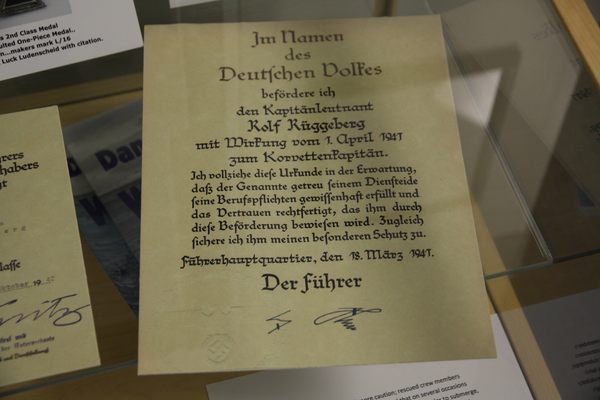 s 2nd Class Medal
ulted One-Piece Medal..
n...makers mark L/16
Luck Ludenscheid with citation.
Im Namen
des
Deutschen Volkes
befördere ich
den Kapitänleutnant
Rolf Rüggeberg
mit Wirkung vom 1. April 1941
zum Korvettenkapitän.
Ich vollziehe diese Urkunde in der Erwartung,
daß der Genannte getreu seinem Diensteide
seine Berufspflichten gewissenhaft erfüllt und
das Vertrauen rechtfertigt, das ihm durch
diese Beförderung bewiesen wird. Zugleich
sichere ich ihm meinen besonderen Schutz zu.
Führerhauptquartier, den 18. März 1941.
Der Führer
hrers
habers
gt
erg
lasse
ktober 1942
Dan
ore caution; rescued crew members
that on several occasions
to submerge,